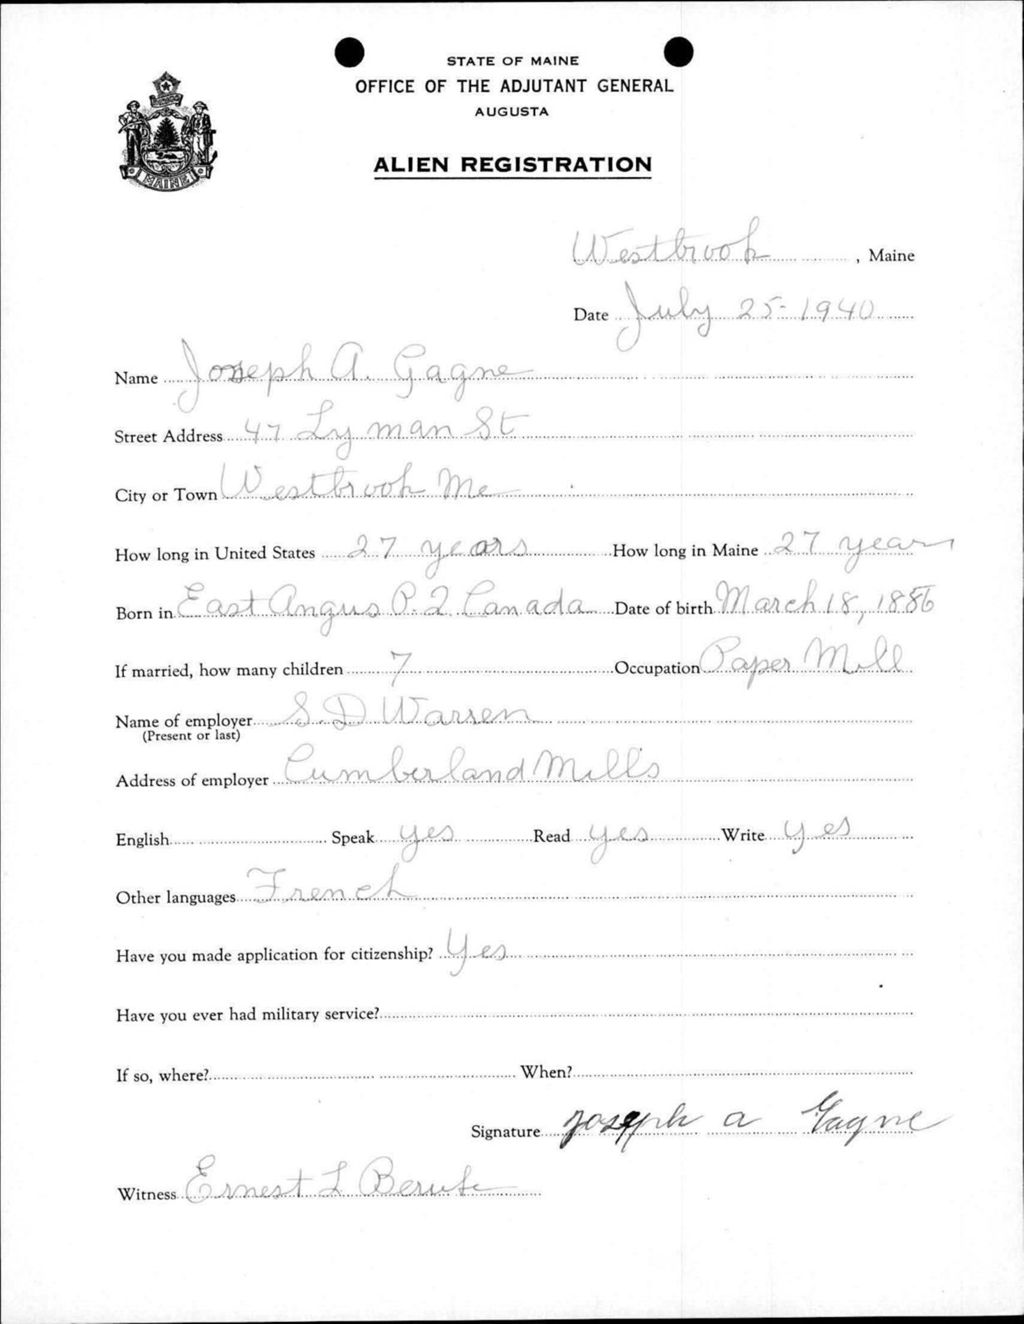 STATE OF MAINE
OFFICE OF THE ADJUTANT GENERAL
AUGUSTA
ALIEN REGISTRATION
MAINE
Westbrook, Maine
Date July 25-1940
Name Joseph A. Gagne
Street Address 47 Lyman St
City or Town Westbrook Me
How long in United States 27 years How long in Maine 27 years
Born in East Angus P.Q. Canada Date of birth March 18, 1886
If married, how many children 7 Occupation Paper Mill
Name of employer S. D Warren
(Present or last)
Address of employer Cumberland Mills
English Speak yes Read yes Write yes
Other languages French
Have you made application for citizenship? Yes
Have you ever had military service?
If so, where? When?
Signature Joseph a Gagne
Witness Ernest L Berube